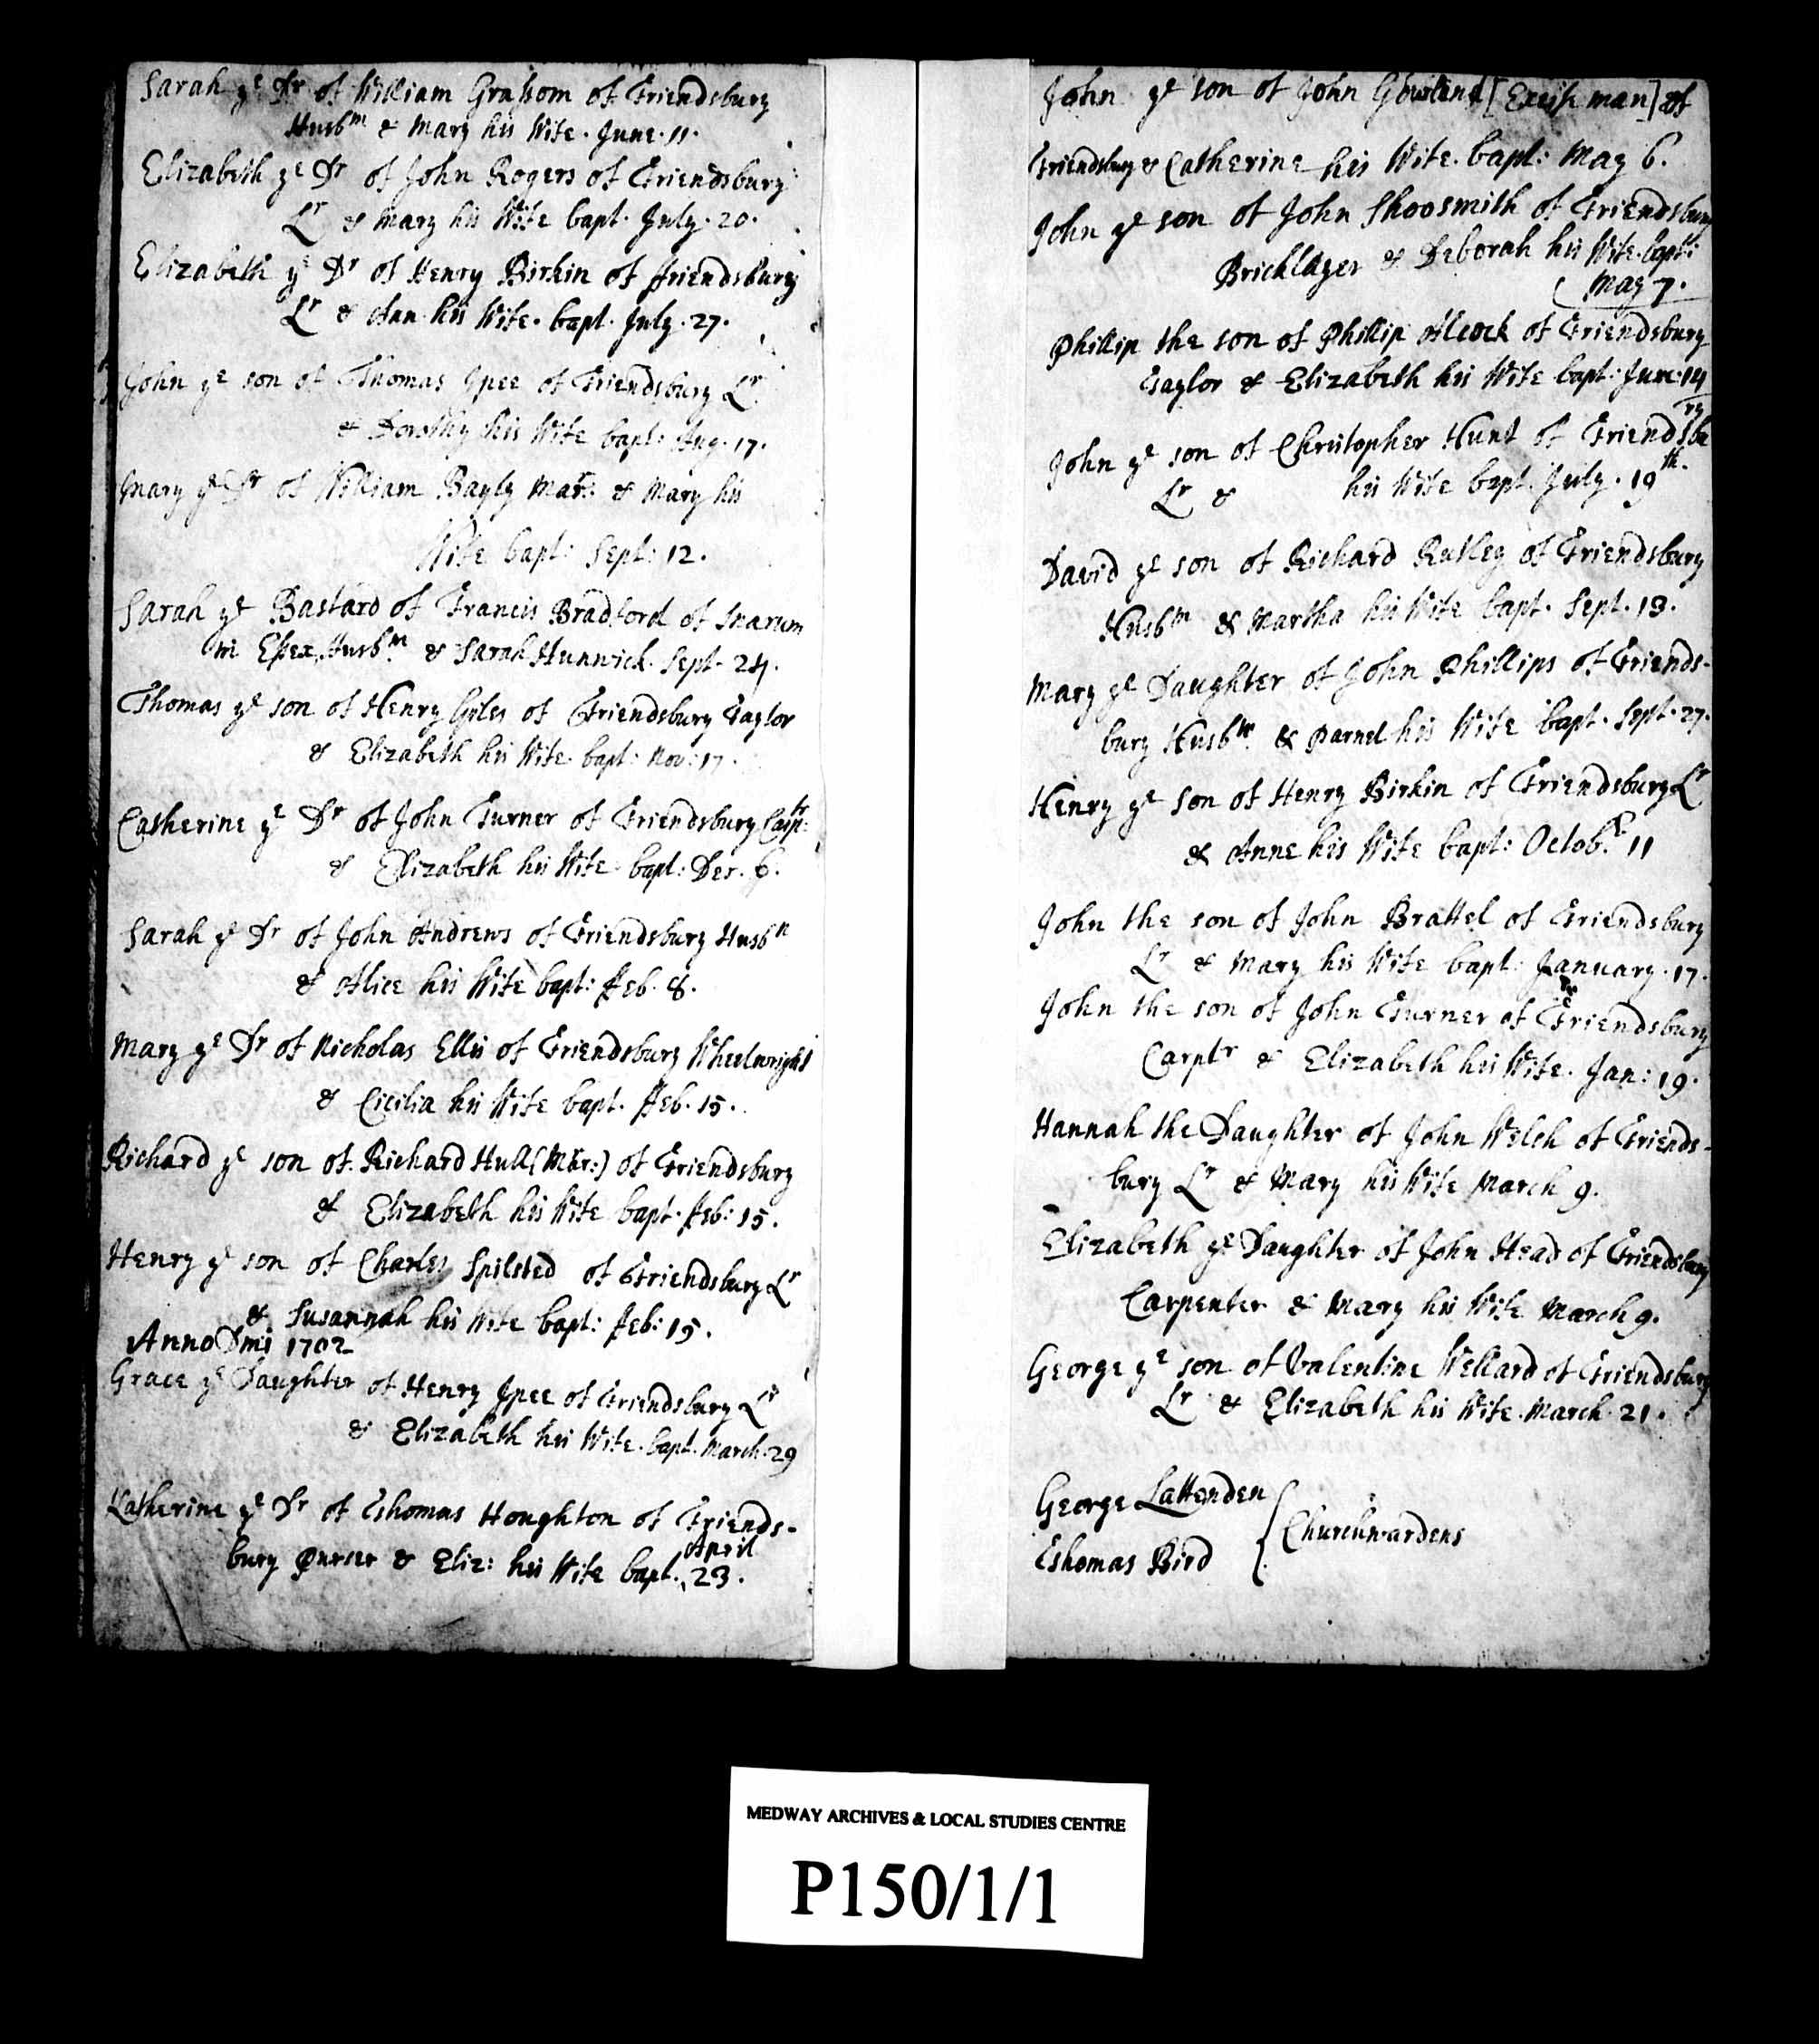 Sarah ye Dr of William Grassom of Friendsbury
Husbm & Mary his Wife. June. 11.
Elizabeth ye Dr of John Rogers of Friendsbury
Lr & Mary his Wife bapt. July. 20.
Elizabeth ye Dr of Henry Birkin of friendsbury
Lr & Ann his Wife. bapt. July. 27.
John ye son of Thomas Ipee of Friendsbury Lr
& Dorothy his Wife bapt: Aug. 17.
Mary ye Dr of William Bayly Mar: & Mary his
Wife bapt: Sept: 12.
Sarah ye Bastard of Francis Bradford of
in Essex, Husbm. & Sarah Hunwick. Sept. 24.
Thomas ye son of Henry Gyles of Friendsbury Taylor
& Elizabeth his Wife. bapt: Nov: 17.
Catherine ye Dr of John Turner of Friendsbury Carptr:
& Elizabeth his Wife. bapt: Dec. 6.
Sarah ye Dr of John Andrews of Friendsbury Husbn
& Alice his Wife bapt: feb. 8.
Mary ye Dr of Nicholas Ellis of Friendsbury Wheelwright
& Cicilia his Wife bapt. feb. 15.
Richard ye son of Richard Hull (Mar:) of Friendsbury
& Elizabeth his Wife bapt. feb: 15.
Henry ye son of Charles Spilsted of Friendsbury Lr
& Susannah his Wife bapt: feb: 15.
Anno Dmi 1702
Grace ye Daughter of Henry Ipee of Friendsbury Lr
& Elizabeth his Wife. bapt. March. 29
Katherine ye Dr of Thomas Houghton of Friends-
bury Purser & Eliz: his Wife bapt. April 23.
John ye son of John Gowland [Excise man] of
Friendsbury & Catherine his Wife. bapt: May 6.
John ye son of John Shoosmith of Friendsbury
Bricklayer & Deborah his Wife. bapt:
May 7.
Phillip the son of Phillip Alcock of Friendsbury
Taylor & Elizabeth his Wife bapt: June: 14
John ye son of Christopher Hunt of Friendsbury
Lr & his Wife bapt. July. 19th.
David ye son of Richard Rutley of Friendsbury
Husbm & Martha his Wife bapt. Sept. 13.
Mary ye Daughter of John Phillips of Friends-
bury Husbm. & Parnel his Wife bapt. Sept. 27.
Henry ye son of Henry Birkin of Friendsbury Lr
& Anne his Wife bapt: Octobr. 11
John the son of John Brattel of Friendsbury
Lr & Mary his Wife bapt: January. 17.
John the son of John Turner of Friendsbury
Carptr & Elizabeth his Wife. Jan: 19.
Hannah the Daughter of John Welch of Friends-
bury Lr & Mary his Wife March 9.
Elizabeth ye Daughter of John Head of Friendsbury
Carpenter & Mary his Wife March 9.
George ye son of Valentine Wellard of Friendsbury
Lr & Elizabeth his Wife. March. 21.
George Lattenden
Thomas Bird
Churchwardens
MEDWAY ARCHIVES & LOCAL STUDIES CENTRE
P150/1/1